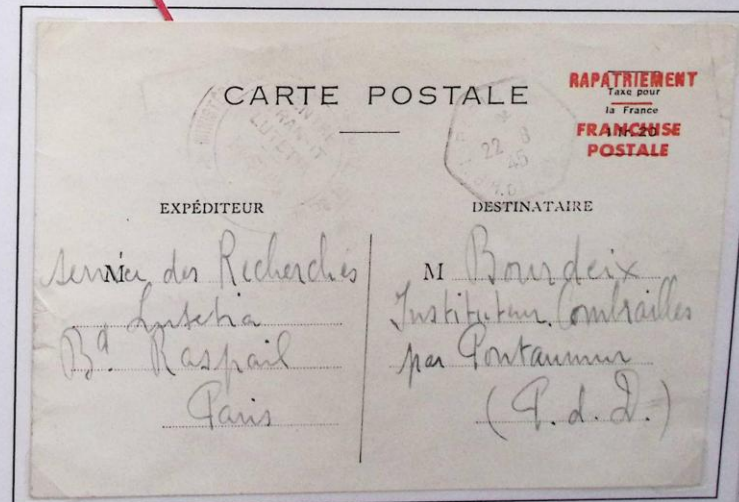 CARTE POSTALE
RAPATRIEMENT
Taxe pour
la France
1 fr. 20
FRANCHISE
POSTALE
CENTRE
TRANSIT
LUTETIA
22 6
45
EXPÉDITEUR
M Service des Recherches
Lutetia
Bd. Raspail
Paris
DESTINATAIRE
M Bourdeix
Instituteur Combrailles
par Pontaumur
(P. d. D.)